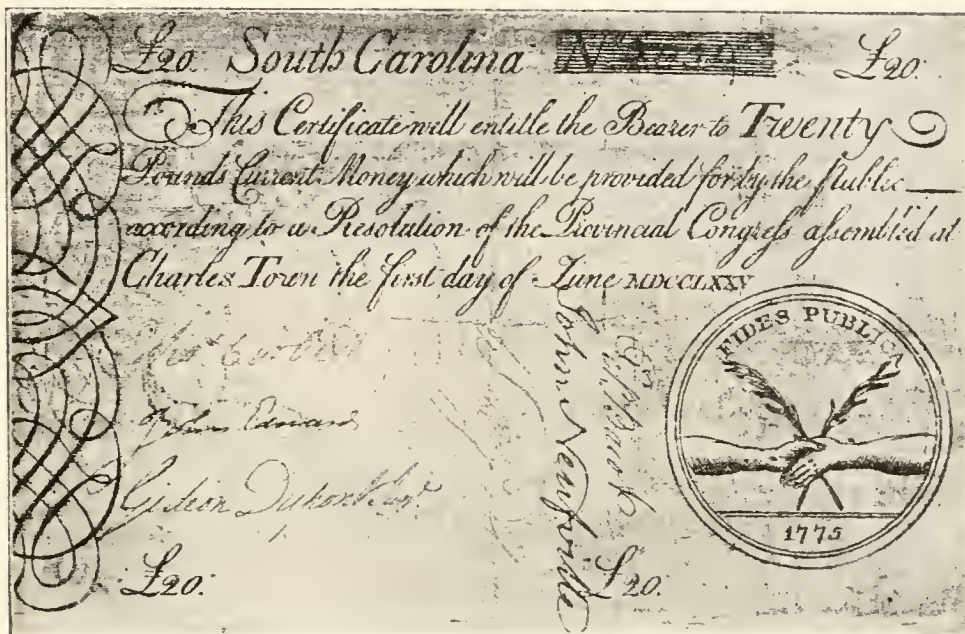 £20. South Carolina N £20.
This Certificate will entitle the Bearer to Twenty
Pounds Current Money which will be provided for by the Public
according to a Resolution of the Provincial Congress assembled at
Charles Town the first day of June MDCCLXXV
FIDES PUBLICA
John Edwards
Gideon Dupont Junr.
John Neufville
1775
£20. £20.